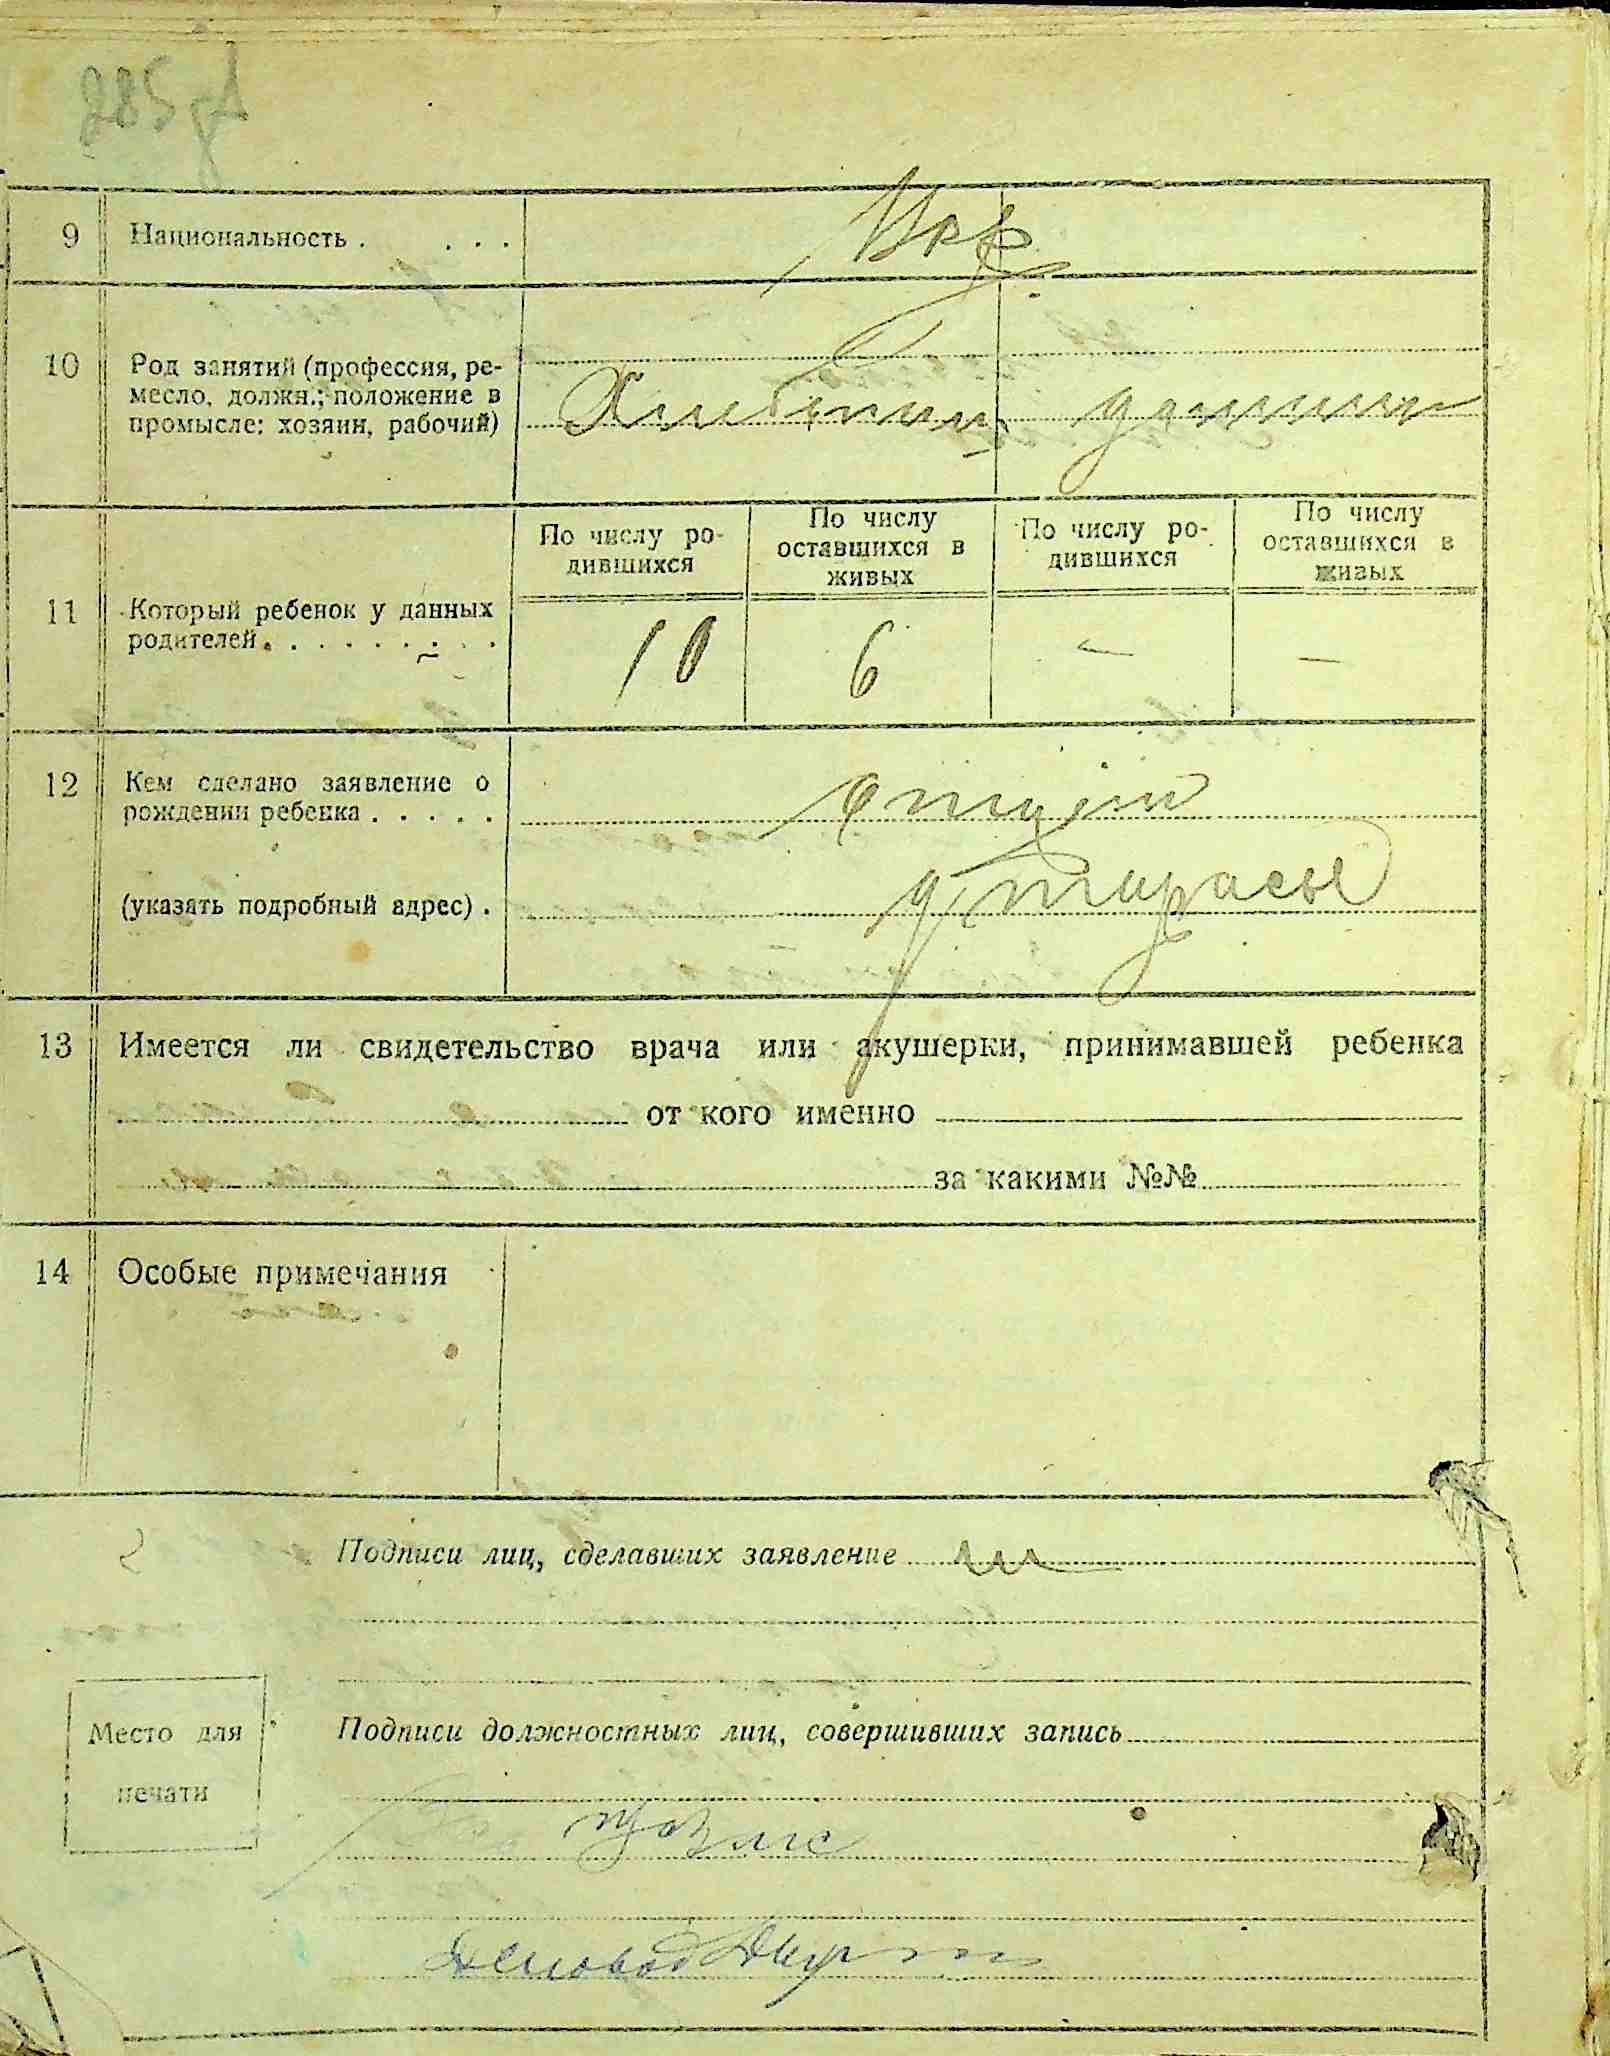 9 Национальность . . . . Укр
10 Род занятий (профессия, ре-
месло, должн.; положение в
промысле: хозяин, рабочий)
По числу ро-
дившихся
По числу
оставшихся в
живых
По числу ро-
дившихся
По числу
оставшихся в
живых
11 Который ребенок у данных
родителей . . . . . . . . .
10 6 — —
12 Кем сделано заявление о
рождении ребенка . . . . .
(указать подробный адрес) .
13 Имеется ли свидетельство врача или акушерки, принимавшей ребенка
от кого именно
за какими №№
14 Особые примечания
Подписи лиц, сделавших заявление
Место для
печати
Подписи должностных лиц, совершивших запись
Деловод